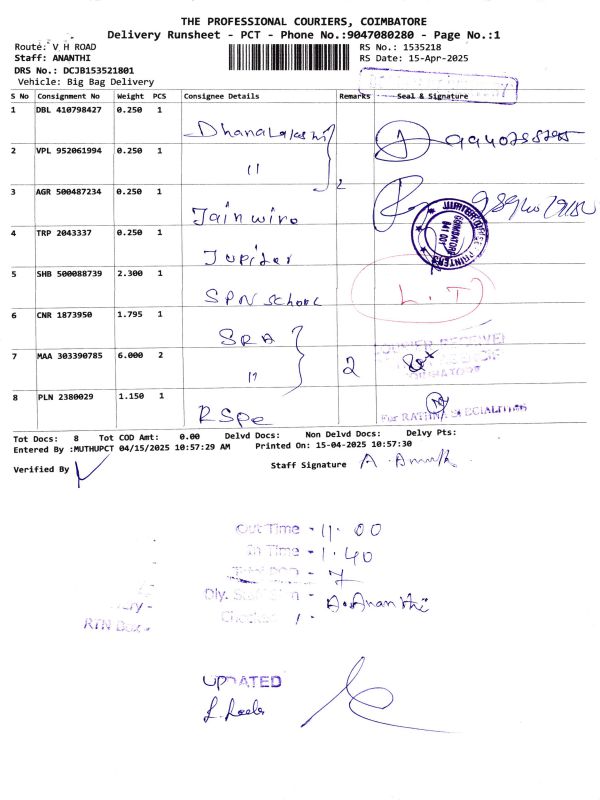 THE PROFESSIONAL COURIERS, COIMBATORE
Delivery Runsheet - PCT - Phone No.:9047080280 - Page No.:1
Route: V H ROAD
RS No.: 1535218
Staff: ANANTHI
RS Date: 15-Apr-2025
DRS No.: DCJB153521801
Vehicle: Big Bag Delivery
S No Consignment No Weight PCS Consignee Details Remarks Seal & Signature
1 DBL 410798427 0.250 1
2 VPL 952061994 0.250 1 11
3 AGR 500487234 0.250 1 Jainwiro
4 TRP 2043337 0.250 1 Jupiter
JUPITER PRINTERS
COIMBATORE
641 001
5 SHB 500088739 2.300 1 SPN School L.T
6 CNR 1873950 1.795 1 SRA
7 MAA 303390785 6.000 2 11 2
8 PLN 2380029 1.150 1 RSpe
For RATHNA SPECIALITIES
Tot Docs: 8 Tot COD Amt: 0.00 Delvd Docs: Non Delvd Docs: Delvy Pts:
Entered By :MUTHUPCT 04/15/2025 10:57:29 AM Printed On: 15-04-2025 10:57:30
Verified By
Staff Signature A. Ananth
Out Time - 11.00
In Time - 1.40
- 7
Dly. Staff Sign - A.Ananthi
RTN Box -
UPDATED